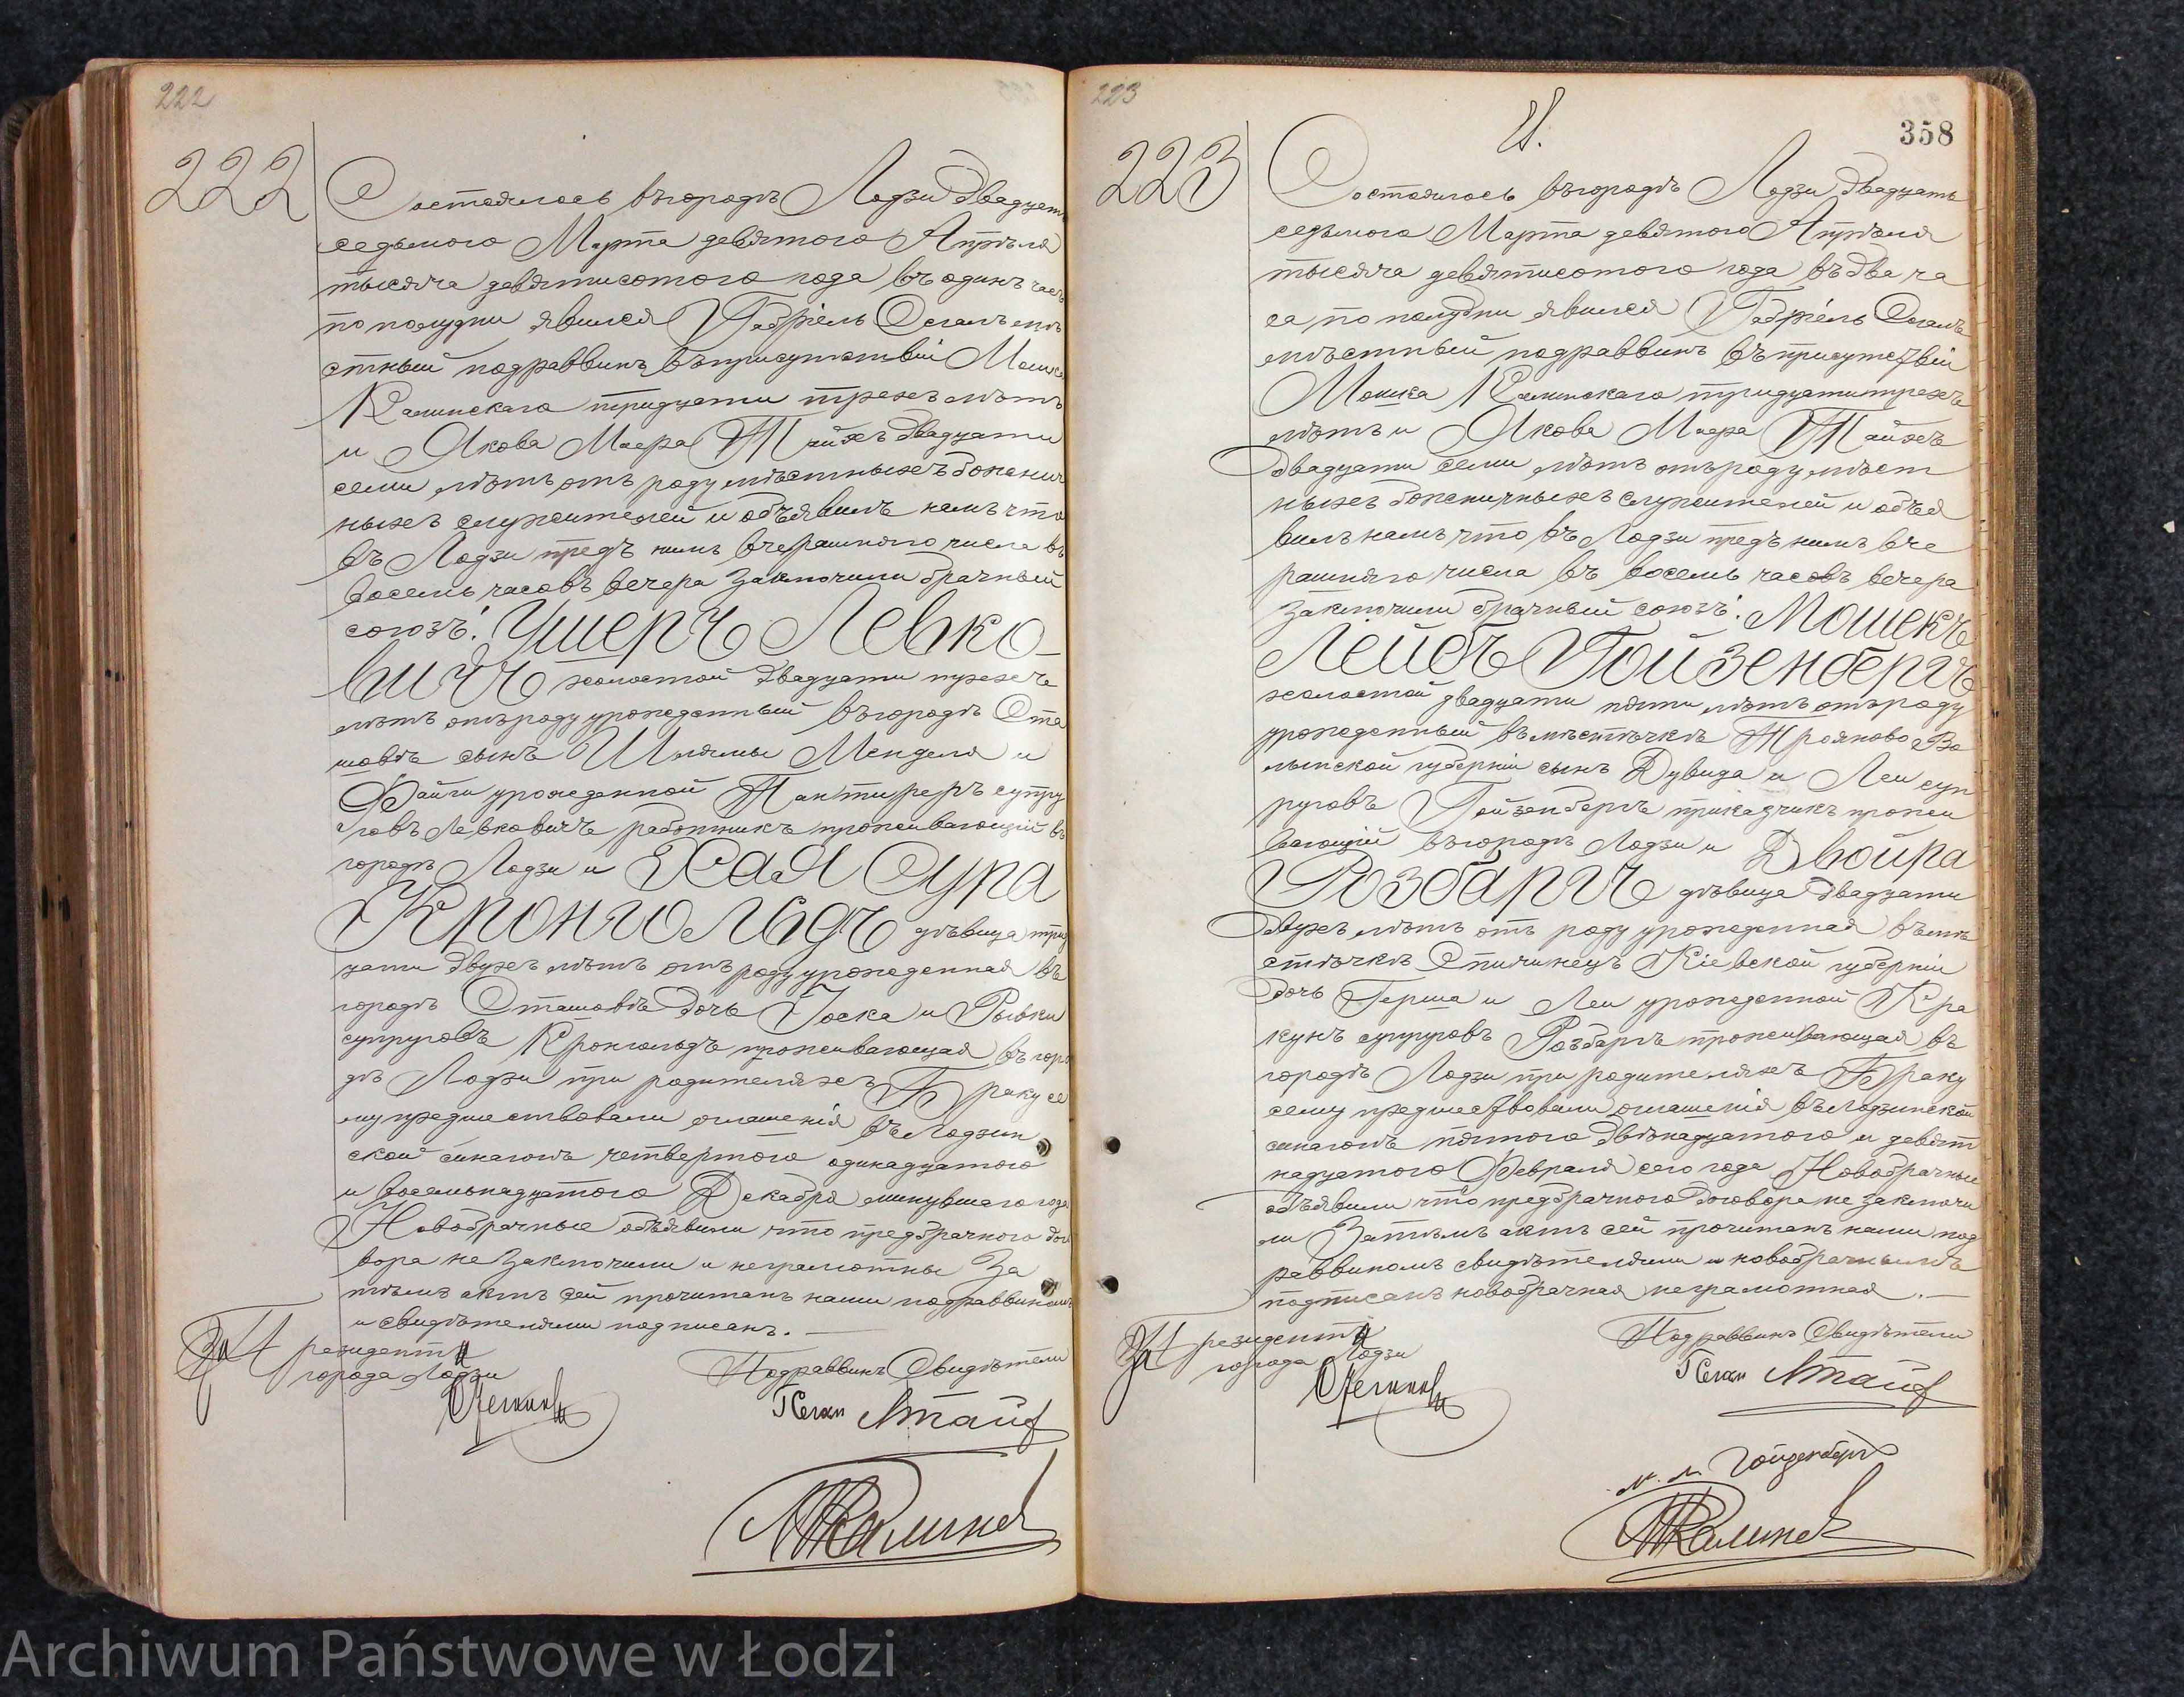 222
222
Состоялось въ городѣ Лодзи двадцать
седьмого Марта девятого Апрѣля
тысяча девятисотого года въ одинъ часъ
по полудни явился Габріель Сегалъ мѣ
стный подраввинъ въ присутствіи Мошка
Калинскаго тридцати трехъ лѣтъ
и Якова Маера Тайхъ двадцати
семи лѣтъ отъ роду мѣстныхъ божнич
ныхъ служителей и объявилъ намъ что
въ Лодзи предъ нимъ вчерашняго числа въ
восемь часовъ вечера заключили брачный
союзъ: Ушеръ Левко-
вичъ холостой двадцати трехъ
лѣтъ отъ роду урожденный въ городѣ Ота
шовѣ сынъ Шлямы Менделя и
Файги урожденной Тантиреръ супру
говъ Левковичъ работникъ проживающій въ
городѣ Лодзи и Хая Сура
Кронгольдъ дѣвица трид
цати двухъ лѣтъ отъ роду урожденная въ
городѣ Оташовѣ дочь Іоска и Рывки
супруговъ Кронгольдъ проживающая въ горо
дѣ Лодзи при родителяхъ Браку се
му предшествовали оглашенія въ Лодзин
ской синагогѣ четвертого одинадцатого
и восемьнадцатого Декабря минувшаго года
Новобрачные объявили что предбрачного дого
вора не заключили и неграмотны За
тѣмъ актъ сей прочитанъ нами подраввиномъ
и свидѣтелями подписанъ. —
За Президента
города Лодзи
Подраввинъ Свидѣтели
Г Сегал Я Тайх
М Калинск
223
358
223
Состоялось въ городѣ Лодзи двадцать
седьмого Марта девятого Апрѣля
тысяча девятисотого года въ два ча
са по полудни явился Габріель Сегалъ
мѣстный подраввинъ въ присутствіи
Мошка Калинскаго тридцати трехъ
лѣтъ и Якова Маера Тайхъ
двадцати семи лѣтъ отъ роду мѣст
ныхъ божничныхъ служителей и объя
вилъ намъ что въ Лодзи предъ нимъ вче
рашняго числа въ восемь часовъ вечера
заключили брачный союзъ: Мошекъ
Лейбъ Гойзенбергъ
холостой двадцати пяти лѣтъ отъ роду
урожденный въ мѣстечкѣ Трояново Во
лынской губерніи сынъ Дувида и Леи суп
руговъ Гойзенбергъ приказчикъ прожи
вающій въ городѣ Лодзи и Двойра
Розбаргъ дѣвица двадцати
двухъ лѣтъ отъ роду урожденная въ мѣ
стечкѣ Спичинецъ Кіевской губерніи
дочь Герша и Леи урожденной Кра
кунъ супруговъ Розбаргъ проживающая въ
городѣ Лодзи при родителяхъ Браку
сему предшествовали оглашенія въ Лодзинской
синагогѣ пятого двѣнадцатого и девят
надцатого Февраля сего года Новобрачные
объявили что предбрачного договора не заключи
ли Затѣмъ актъ сей прочитанъ нами под
раввиномъ свидѣтелями и новобрачнымъ
подписанъ новобрачная неграмотная. —
За Президента
города Лодзи
Подраввинъ Свидѣтели
Г Сегал Я Тайх
М. Л. Гойзенбергъ
М Калинск
Archiwum Państwowe w Łodzi